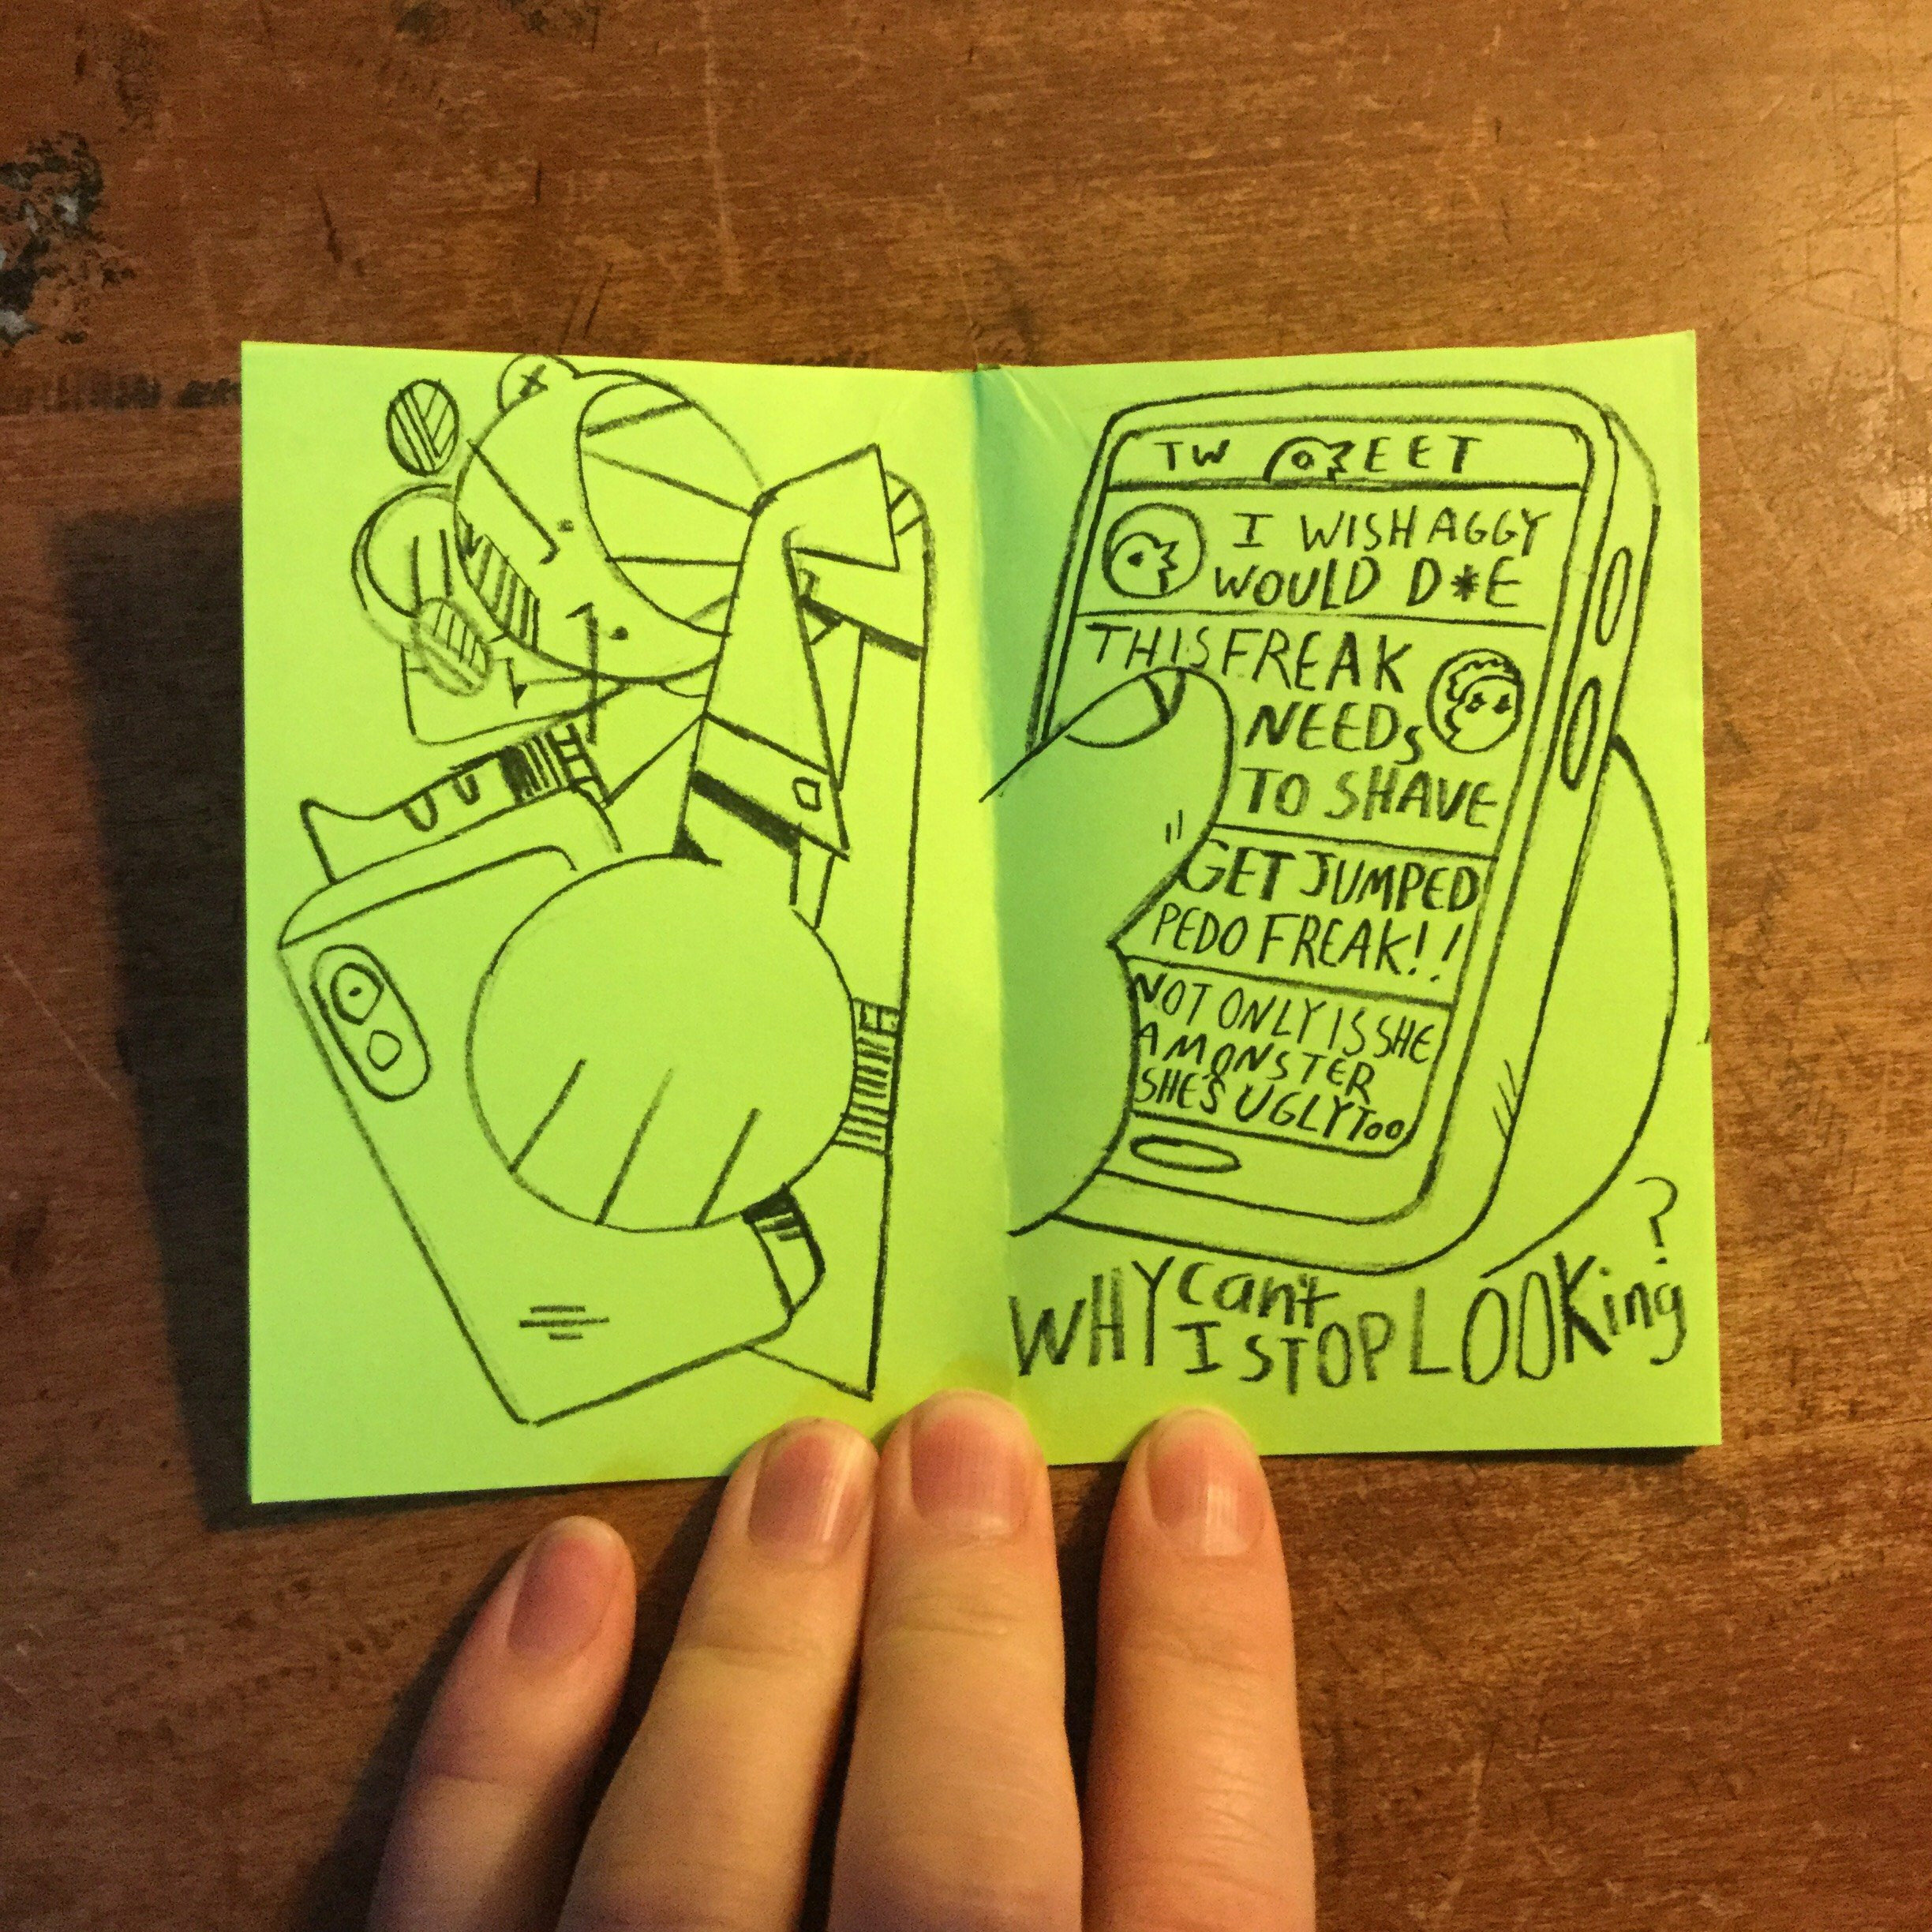 TW EET
I WISH AGGY
WOULD D*E
THIS FREAK
NEEDS
TO SHAVE
GET JUMPED
PEDO FREAK!!
NOT ONLY IS SHE
A MONSTER
SHE'S UGLY TOO
WHY can't
I STOP LOOKing?